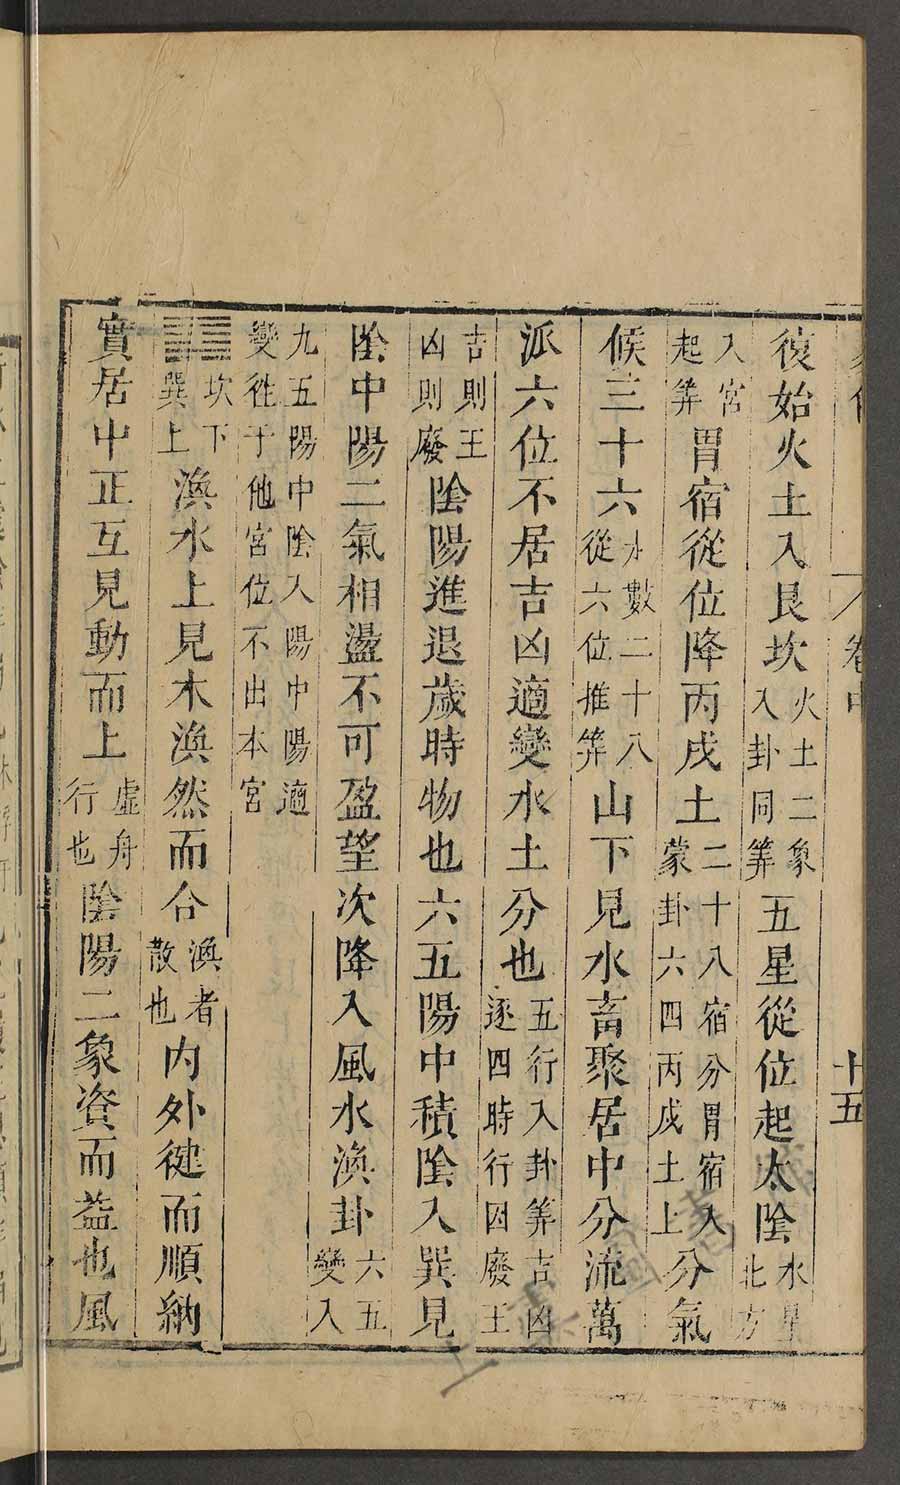 卷中
十五
復始火土入艮坎火土二象入卦同筭五星從位起太陰水星北方
入宮起筭胃宿從位降丙戌土二十八宿分胃宿入蒙卦六四丙戌土上分氣
候三十六數二十八從六位推筭山下見水畜聚居中分流萬
派六位不居吉凶適變水土分也五行入卦筭吉凶逐四時行囚廢王
吉則王凶則廢陰陽進退歲時物也六五陽中積陰入巽見
陰中陽二氣相盪不可盈望次降入風水渙卦六五變入
九五陽中陰入陽中陽適變徃于他宮位不出本宮
坎下巽上渙水上見木渙然而合渙者散也內外健而順納
實居中正互見動而上虛舟行也陰陽二象資而益也風